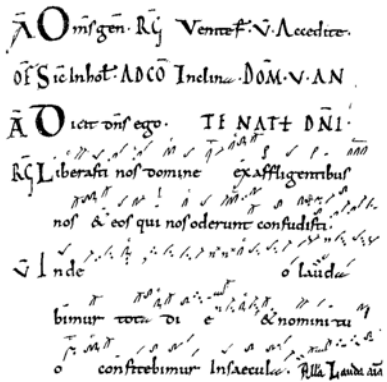 AÑ Om̄s gen̄. RG̃ Venite f. V̄. Accedite.
OF̄ Sic̄ in hol. AD CŌ Inclina. DOM̄. V. AN
AÑ Dicit dn̄s ego. TE NAT DN̄I.
RG̃ Liberasti nos domine ex affligentibus
nos & eos qui nos oderunt confudisti.
V̄ In de o lauda
bimur tota di e & nomini tu
o confitebimur in saecula. All̄a Lauda